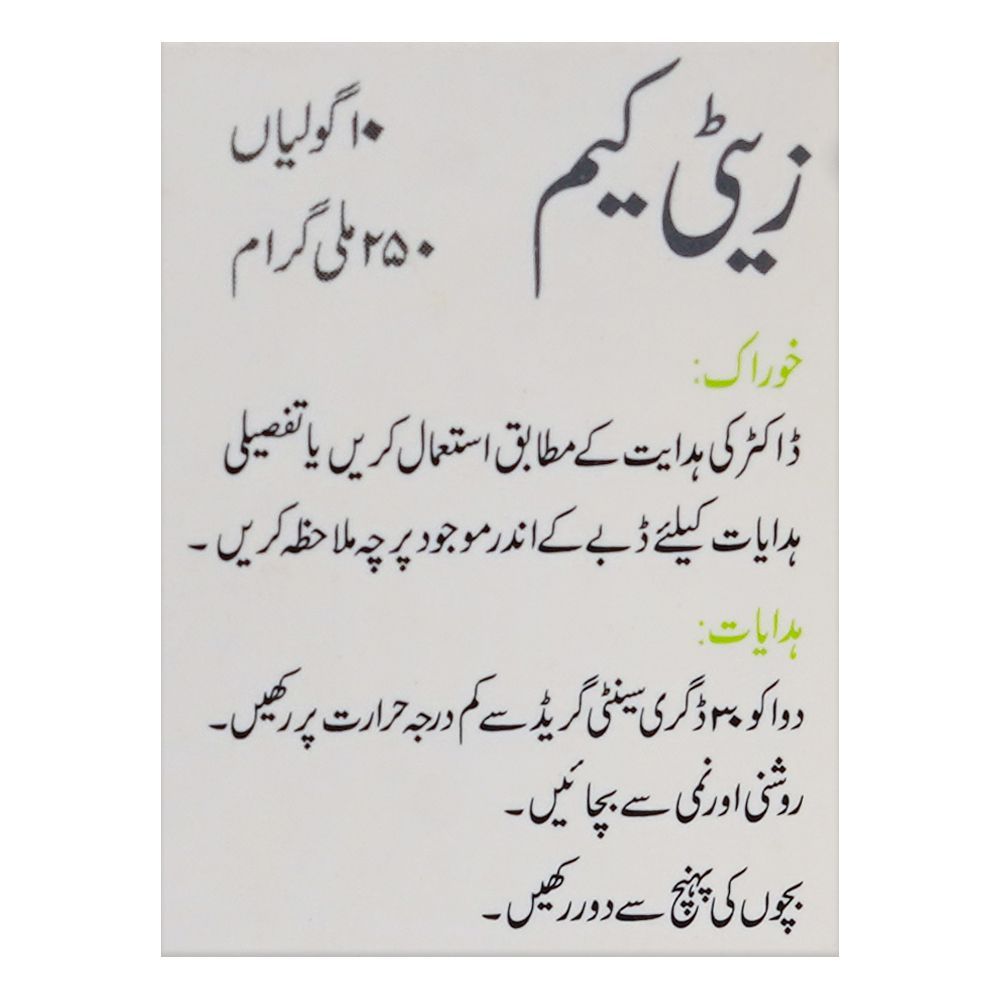 زیٹی کیم
۱۰ گولیاں
۲۵۰ ملی گرام
خوراک:
ڈاکٹر کی ہدایت کے مطابق استعمال کریں یا تفصیلی
ہدایات کیلئے ڈبے کے اندر موجود پرچہ ملاحظہ کریں۔
ہدایات:
دوا کو ۳۰ ڈگری سینٹی گریڈ سے کم درجہ حرارت پر رکھیں۔
روشنی اور نمی سے بچائیں۔
بچوں کی پہنچ سے دور رکھیں۔